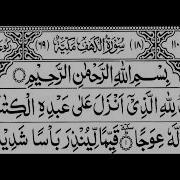 (١٨) سُوْرَةُ الْكَهْفِ مَكِّيَّةٌ (٦٩)
بِسْمِ اللّٰهِ الرَّحْمٰنِ الرَّحِيْمِ
لِلّٰهِ الَّذِيْۤ اَنْزَلَ عَلٰى عَبْدِهِ الْكِتٰ
لَّهٗ عِوَجًا قَيِّمًا لِّيُنْذِرَ بَاْسًا شَدِيْدً